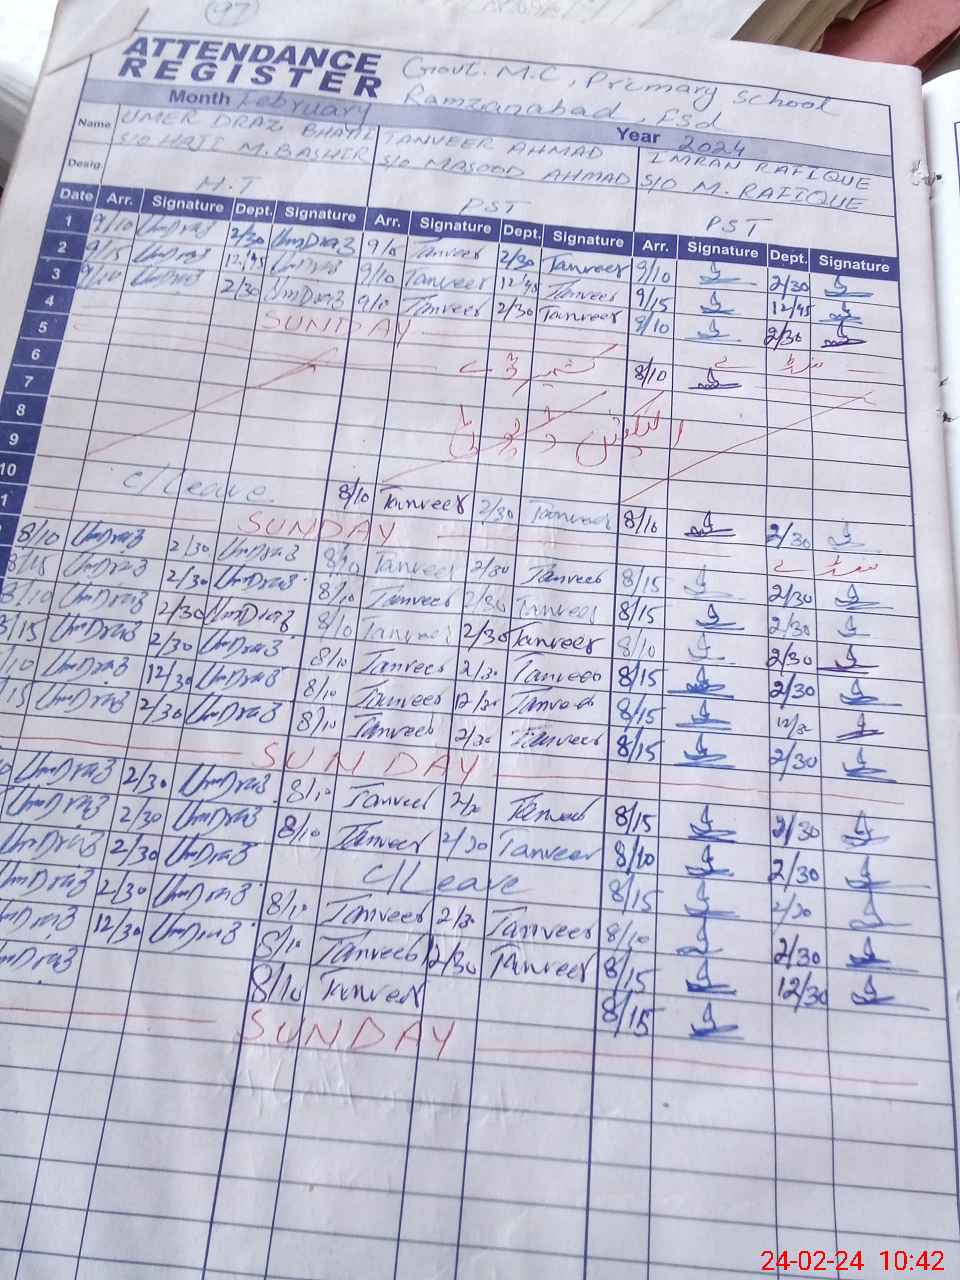 97
ATTENDANCE REGISTER Govt. M.C, Primary School
Ramzanabad, Fsd
Month February Year 2024
Name UMER DRAZ BHATTI TANVEER AHMAD IMRAN RAFIQUE
S/O HAJI M. BASHIR S/O MASOOD AHMAD S/O M. RAFIQUE
Desig. H.T PST PST
Date Arr. Signature Dept. Signature Arr. Signature Dept. Signature Arr. Signature Dept. Signature
1 9/10 UmDraz 2/30 UmDraz 9/10 Tanveer 2/30 Tanveer 9/10 2/30
2 9/15 UmDraz 12/45 UmDraz 9/10 Tanveer 12/45 Tanveer 9/15 12/45
3 9/10 UmDraz 2/30 UmDraz 9/10 Tanveer 2/30 Tanveer 8/10 2/30
4 SUNDAY
5
6 8/10
7
8
9
10 C/Leave 8/10 Tanveer 2/30 Tanveer 8/10 2/30
1 SUNDAY
8/10 UmDraz 2/30 UmDraz 8/10 Tanveer 2/30 Tanveer 8/15 2/30
8/15 UmDraz 2/30 UmDraz 8/10 Tanveer 2/30 Tanveer 8/15 2/30
8/10 UmDraz 2/30 UmDraz 8/10 Tanveer 2/30 Tanveer 8/10 2/30
8/15 UmDraz 2/30 UmDraz 8/10 Tanveer 2/30 Tanveer 8/15 2/30
/10 UmDraz 12/30 UmDraz 8/10 Tanveer 12/30 Tanveer 8/15 12/30
15 UmDraz 2/30 UmDraz 8/10 Tanveer 2/30 Tanveer 8/15 2/30
SUNDAY
UmDraz 2/30 UmDraz 8/10 Tanveer 2/30 Tanveer 8/15 2/30
UmDraz 2/30 UmDraz 8/10 Tanveer 2/30 Tanveer 8/10 2/30
UmDraz 2/30 UmDraz C/Leave 8/15 2/30
UmDraz 2/30 UmDraz 8/10 Tanveer 2/30 Tanveer 8/10 2/30
UmDraz 12/30 UmDraz 8/10 Tanveer 12/30 Tanveer 8/15 12/30
UmDraz 8/10 Tanveer 8/15
SUNDAY
24-02-24 10:42